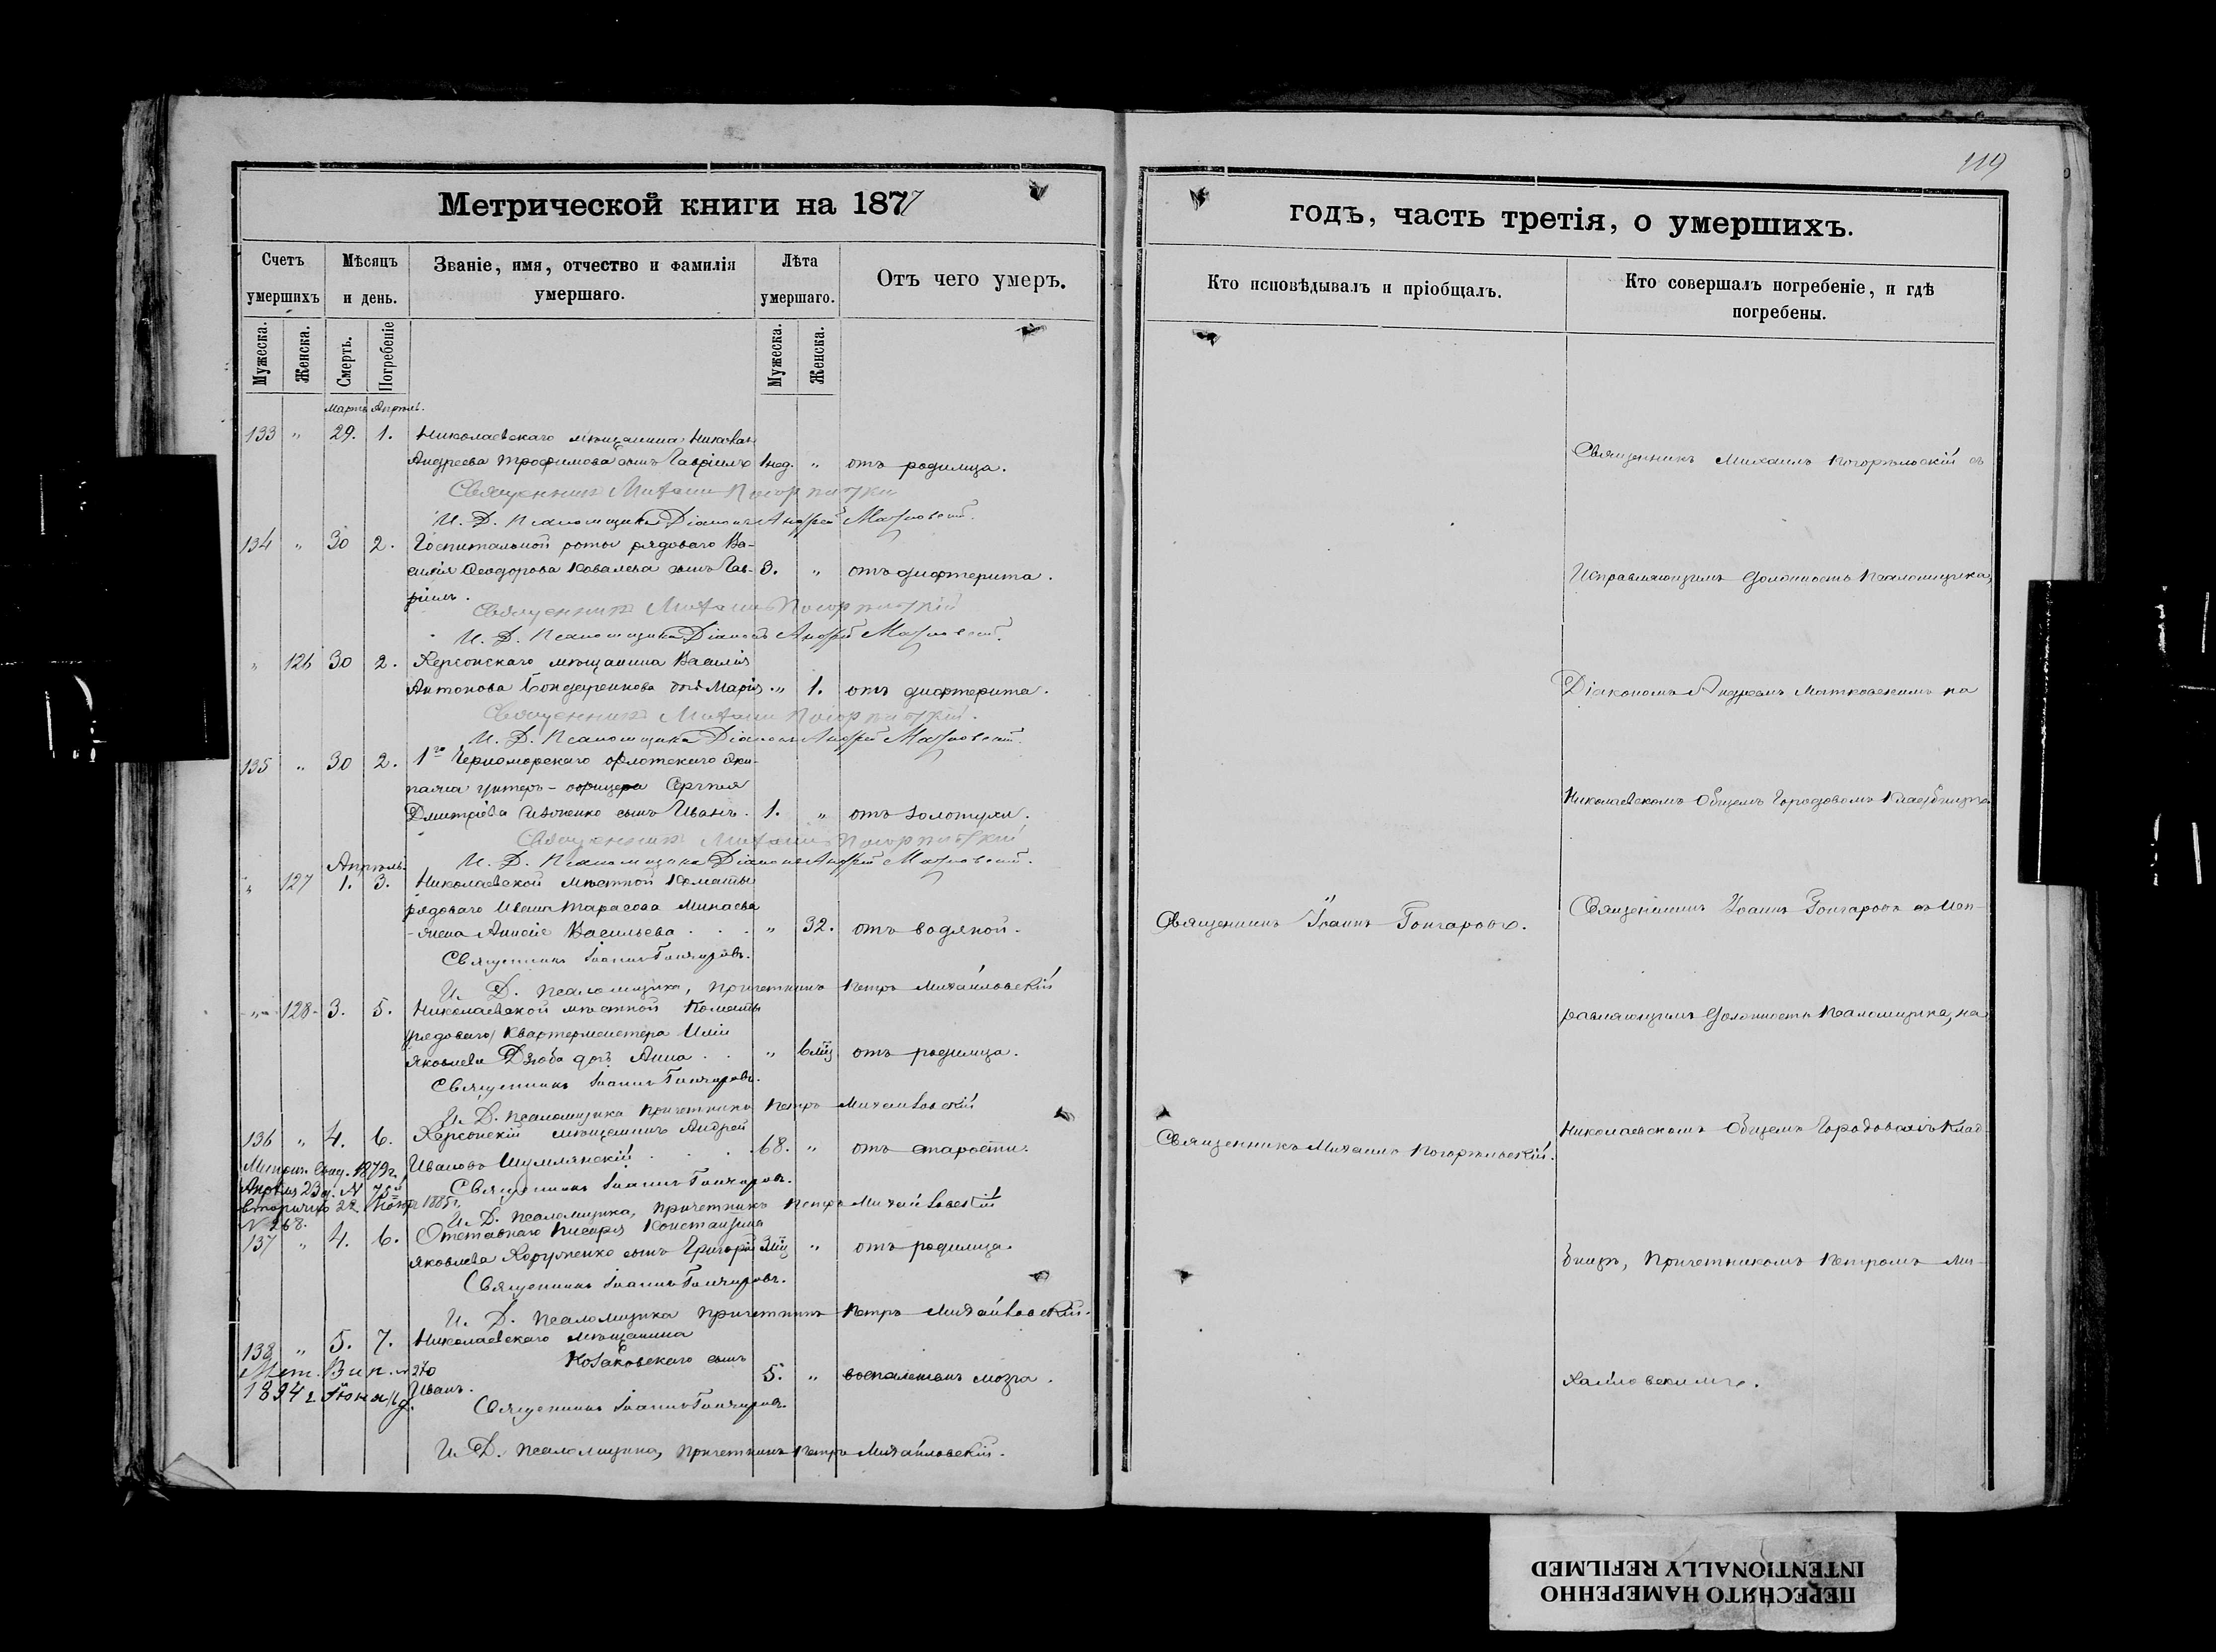 119
Метрической книги на 1877
годъ, часть третія, о умершихъ.
Счетъ умершихъ
Мѣсяцъ и день.
Званіе, имя, отчество и фамилія умершаго.
Лѣта умершаго.
Отъ чего умеръ.
Кто исповѣдывалъ и пріобщалъ.
Кто совершалъ погребеніе, и гдѣ погребены.
Мужеска. Женска. Смерть. Погребеніе Мужеска. Женска.
Мартъ Апрѣль.
133 " 29. 1. Николаевскаго мѣщанина
Андреева Трофимова сынъ Гавріилъ 1 нед. " отъ родимца.
Священникъ Михаилъ Погорѣльскій
И. Д. Псаломщика Діаконъ Андрей
134 " 30 2. Госпитальной роты рядоваго Ва-
силія Ѳеодорова Ковалева сынъ Гав- 3. " отъ дифтерита.
ріилъ.
Священникъ Михаилъ Погорѣльскій
И. Д. Псаломщика Діаконъ Андрей
" 126 30 2. Херсонскаго мѣщанина Василія
Антонова Бондаренкова дочь Марія. " 1. отъ дифтерита.
Священникъ Михаилъ Погорѣльскій.
И. Д. Псаломщика Діаконъ Андрей
135 " 30 2. 1го Черноморскаго флотскаго эки-
пажа унтеръ-офицера Сергѣя
Дмитріева сынъ Иванъ. 1. " отъ золотухи.
Священникъ Михаилъ Погорѣльскій
И. Д. Псаломщика Діаконъ Андрей
Апрѣль
" 127 1. 3. Николаевской мѣстной Команды
рядоваго Ивана Тарасова Минаева
жена Васильева . . . " 32. отъ водяной.
Священникъ Іоаннъ Гончаровъ.
И. Д. Псаломщика, Причетникъ Петръ Михайловскій
" 128 3. 5. Николаевской мѣстной Команды
(рядоваго) Квартермейстера Иліи
Яковлева Дзюба дочь Анна . . " отъ родимца.
Священникъ Іоаннъ Гончаровъ.
И. Д. Псаломщика Причетникъ Петръ Михайловскій
136 " 4. 6. Херсонскій мѣщанинъ Андрей
Ивановъ Шумлянскій . . . 68. " отъ старости.
1879г.
Апрѣля 23 д. N 75
вторично 22 1885г.
N 268.
Священникъ Іоаннъ Гончаровъ.
И. Д. Псаломщика, Причетникъ Петръ Михайловскій
137 " 4. 6. Отставнаго Писаря Константина
Яковлева сынъ Григорій " отъ родимца.
Священникъ Іоаннъ Гончаровъ.
И. Д. Псаломщика Причетникъ Петръ Михайловскій.
138 " 5. 7. Николаевскаго мѣщанина
Козаковскаго сынъ
Иванъ. 5. " воспаленіемъ мозга.
1894 г.
Священникъ Іоаннъ Гончаровъ.
И. Д. Псаломщика, Причетникъ Петръ Михайловскій.
Священникъ Іоаннъ Гончаровъ.
Священникъ Михаилъ Погорѣльскій.
Священникъ Михаилъ Погорѣльскій съ
Исправляющимъ должность Псаломщика,
Діакономъ Андреемъ на
Николаевскомъ Общемъ Городовомъ Кладбищѣ.
Священникъ Іоаннъ Гончаровъ съ Исп-
равляющимъ должность Псаломщика, на
Николаевскомъ Общемъ Городовомъ Клад-
бищѣ, Причетникомъ Петромъ Ми-
хайловскимъ.
ПЕРЕСНЯТО НАМЕРЕННО
INTENTIONALLY REFILMED